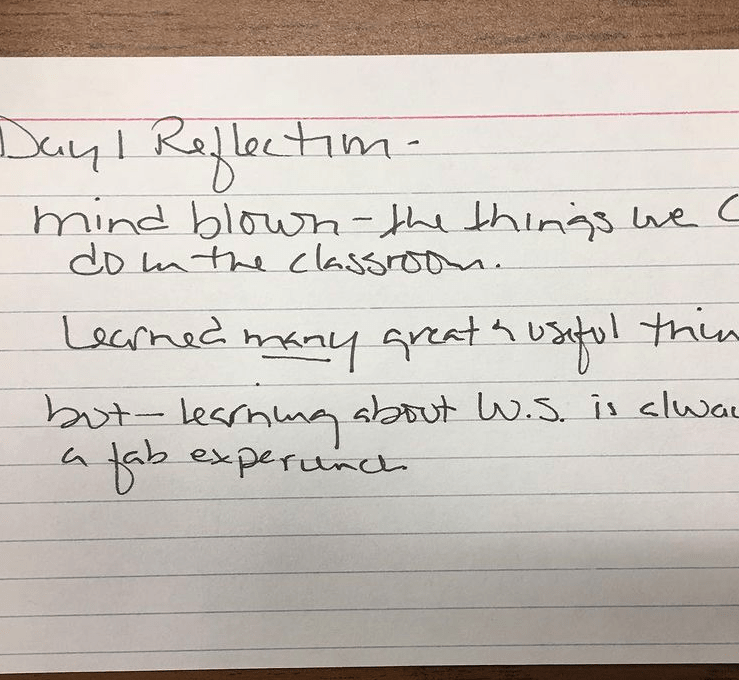 Day 1 Reflection -
mind blown - the things we C
do in the classroom.
Learned many great & useful thin
but - learning about W.S. is alwa
a fab experience